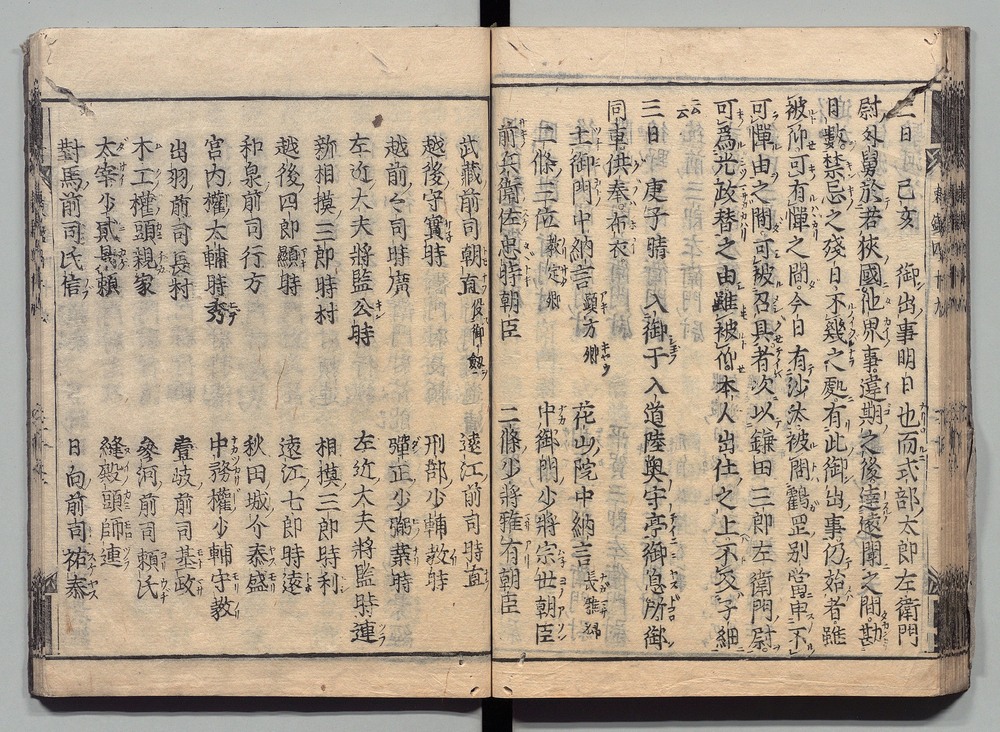 二日 己亥 御出事明日也而式部太郎左衛門
尉外舅於若狹國他界事違期之後達遠聞之間勘
日數禁忌之殘日不幾之處有此御出事仍始者雖
被仰可有憚之間今日有沙汰被問鶴岡別當車下
可憚由之間可被召具者次以鎌田三郎左衛門尉
可爲光政替之由雖被仰本人出仕之上不及子細
云云
三日 庚子晴 入御于入道陸奥守亭御息所御
同車供奉布衣
土御門中納言顯方卿 花山院中納言長雅卿
二條三位教定卿 中御門少將宗世朝臣
前兵衛佐忠時朝臣 二條少將雅有朝臣
武藏前司朝直役御劔 遠江前司時直
越後守實時 刑部少輔教時
越前々司時廣 彈正少弼業時
左近大夫將監公時 左近大夫將監時連
新相摸三郎時村 相摸三郎時利
越後四郎顯時 遠江七郎時遠
和泉前司行方 秋田城介泰盛
宮内權太輔時秀 中務權少輔守教
出羽前司長村 壹岐前司基政
木工權頭親家 參河前司頼氏
太宰少貳景頼 縫殿頭師連
對馬前司氏信 日向前司祐泰